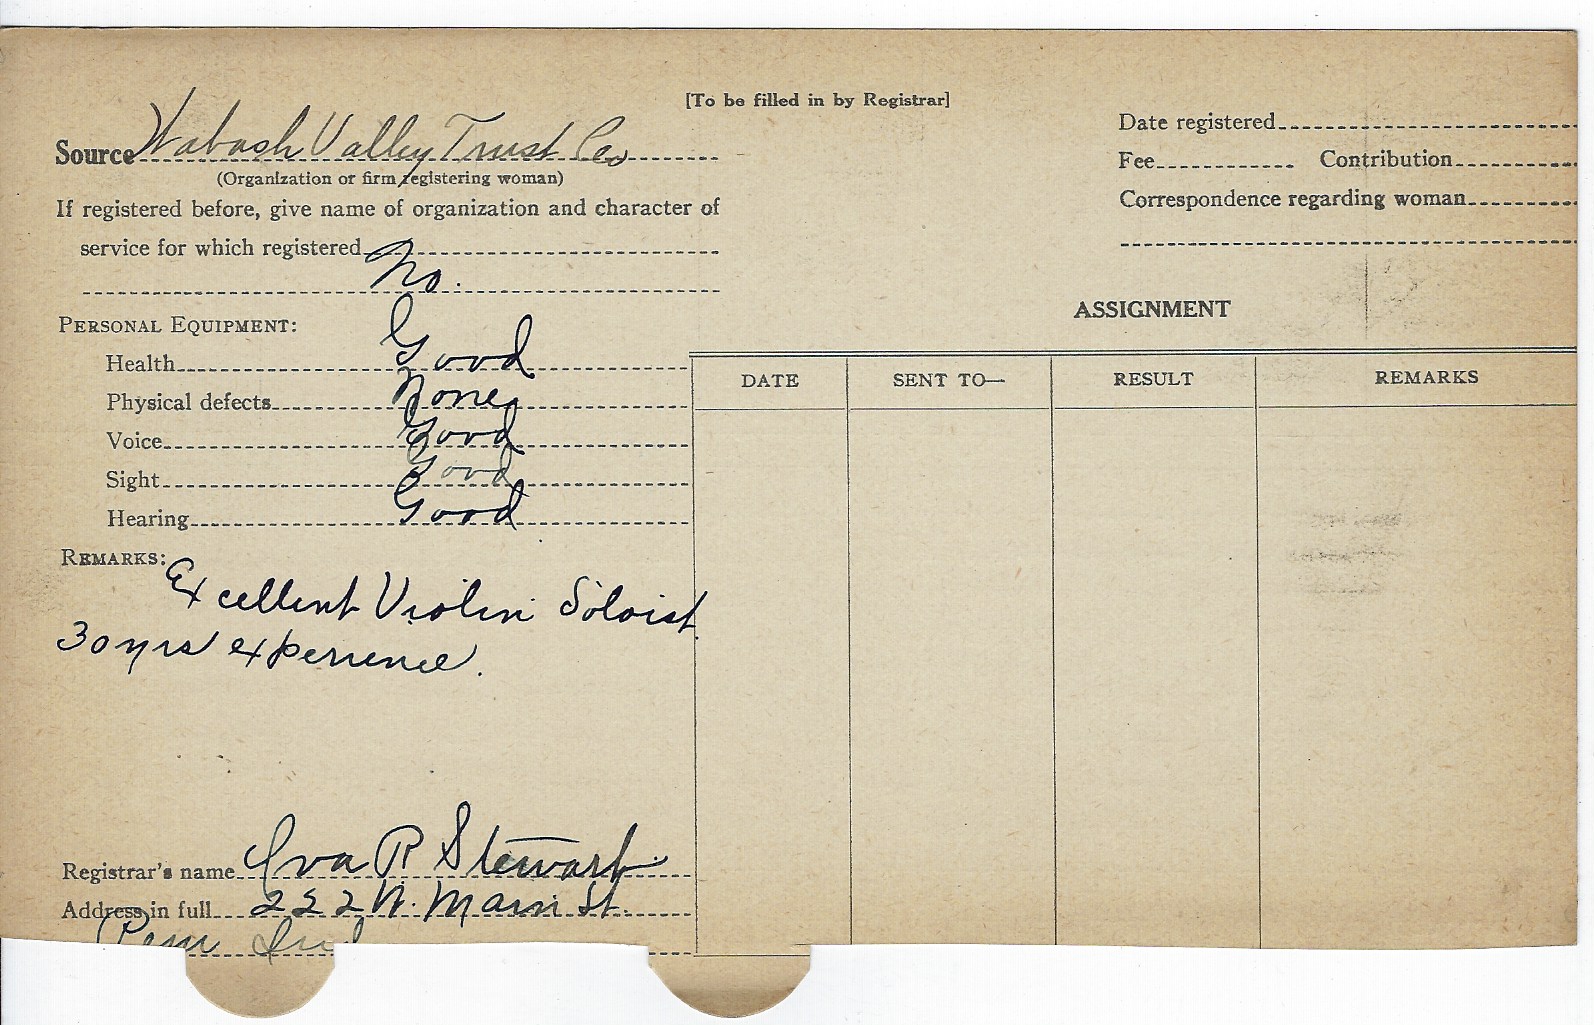 [To be filled in by Registrar]
Source Wabash Valley Trust Co
(Organization or firm registering woman)
If registered before, give name of organization and character of
service for which registered
No.
PERSONAL EQUIPMENT:
Health Good
Physical defects None
Voice Good
Sight Good
Hearing Good
REMARKS:
Excellent Violin Soloist
30 yrs experience.
Registrar's name Iva R Stewart
Address in full 222 W. Main St.
Peru Ind
Date registered
Fee Contribution
Correspondence regarding woman
ASSIGNMENT
DATE SENT TO— RESULT REMARKS